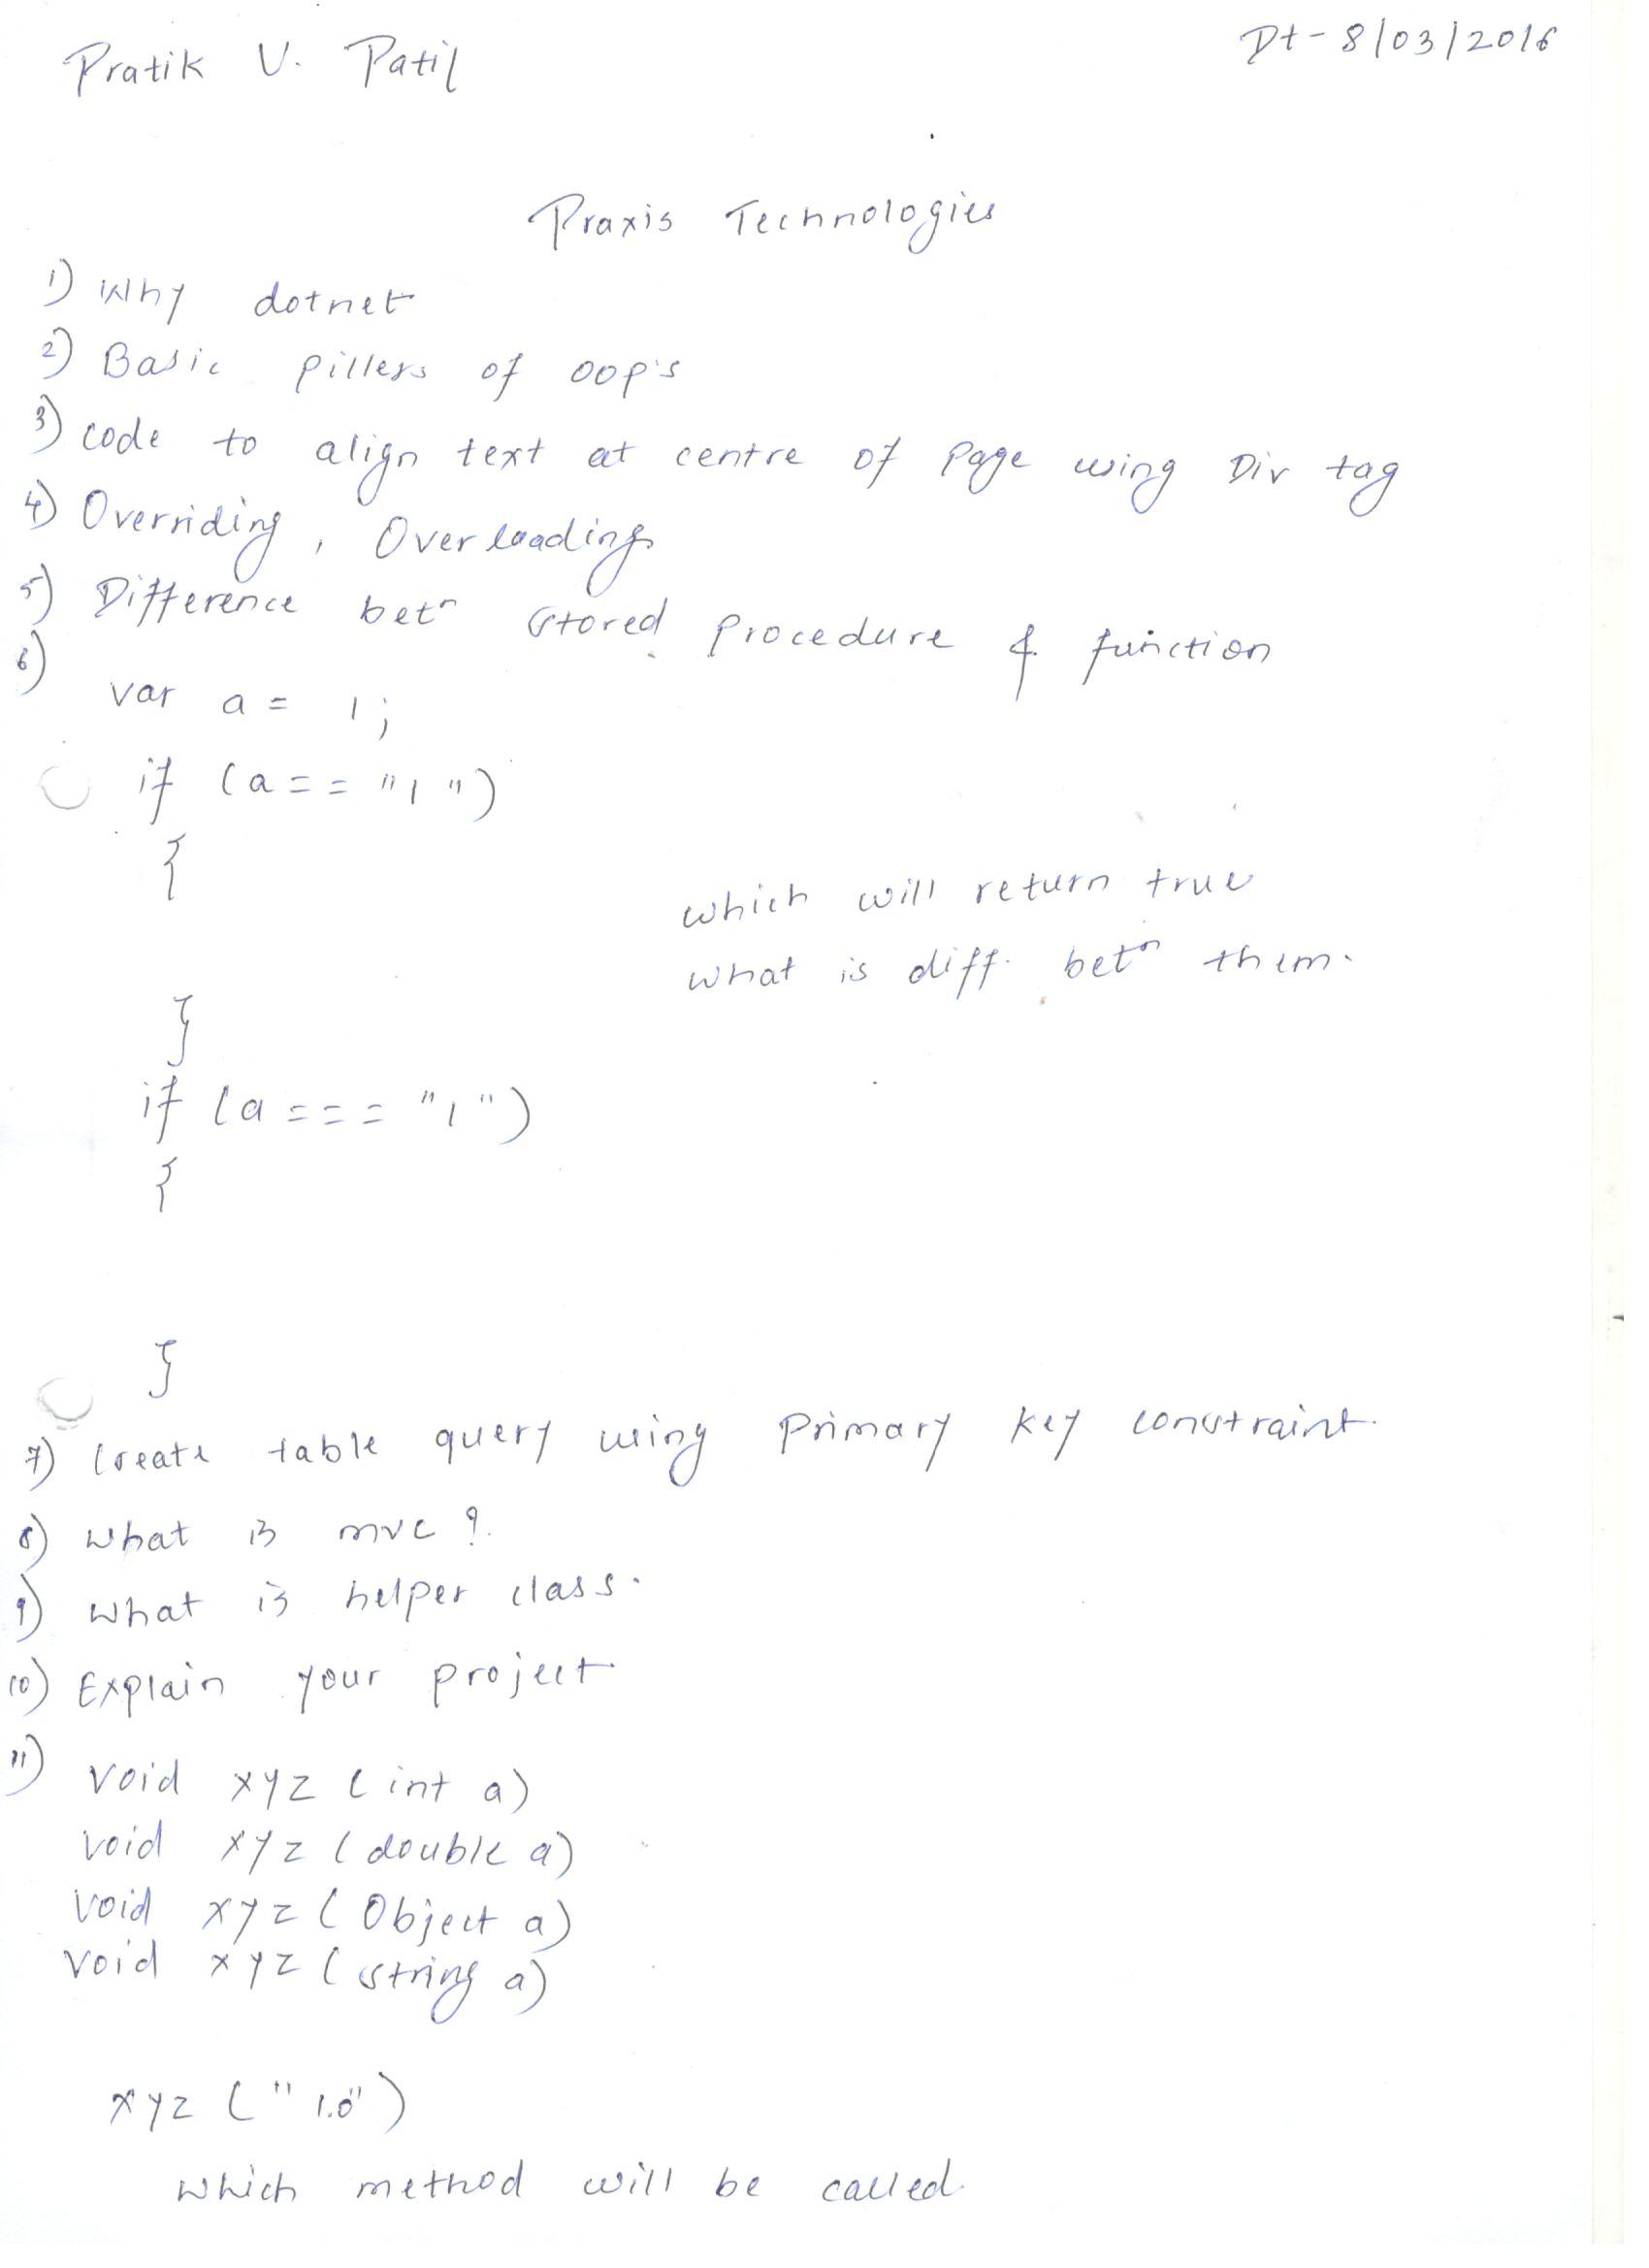 Pratik V. Patil
Dt - 8/03/2016
Praxis Technologies
1) Why dotnet
2) Basic pillers of oop's
3) code to align text at centre of Page using Div tag
4) Overriding, Overloading
5) Difference betn Stored procedure & function
6)
var a = 1;
if (a == "1")
{
which will return true
what is diff. betn them.
}
if (a === "1")
{
}
7) Create table query using Primary key constraint.
8) what is mvc ?
9) what is helper class.
10) Explain your project
11) void xyz (int a)
void xyz (double a)
void xyz (Object a)
void xyz (string a)
xyz ("1.0")
which method will be called.